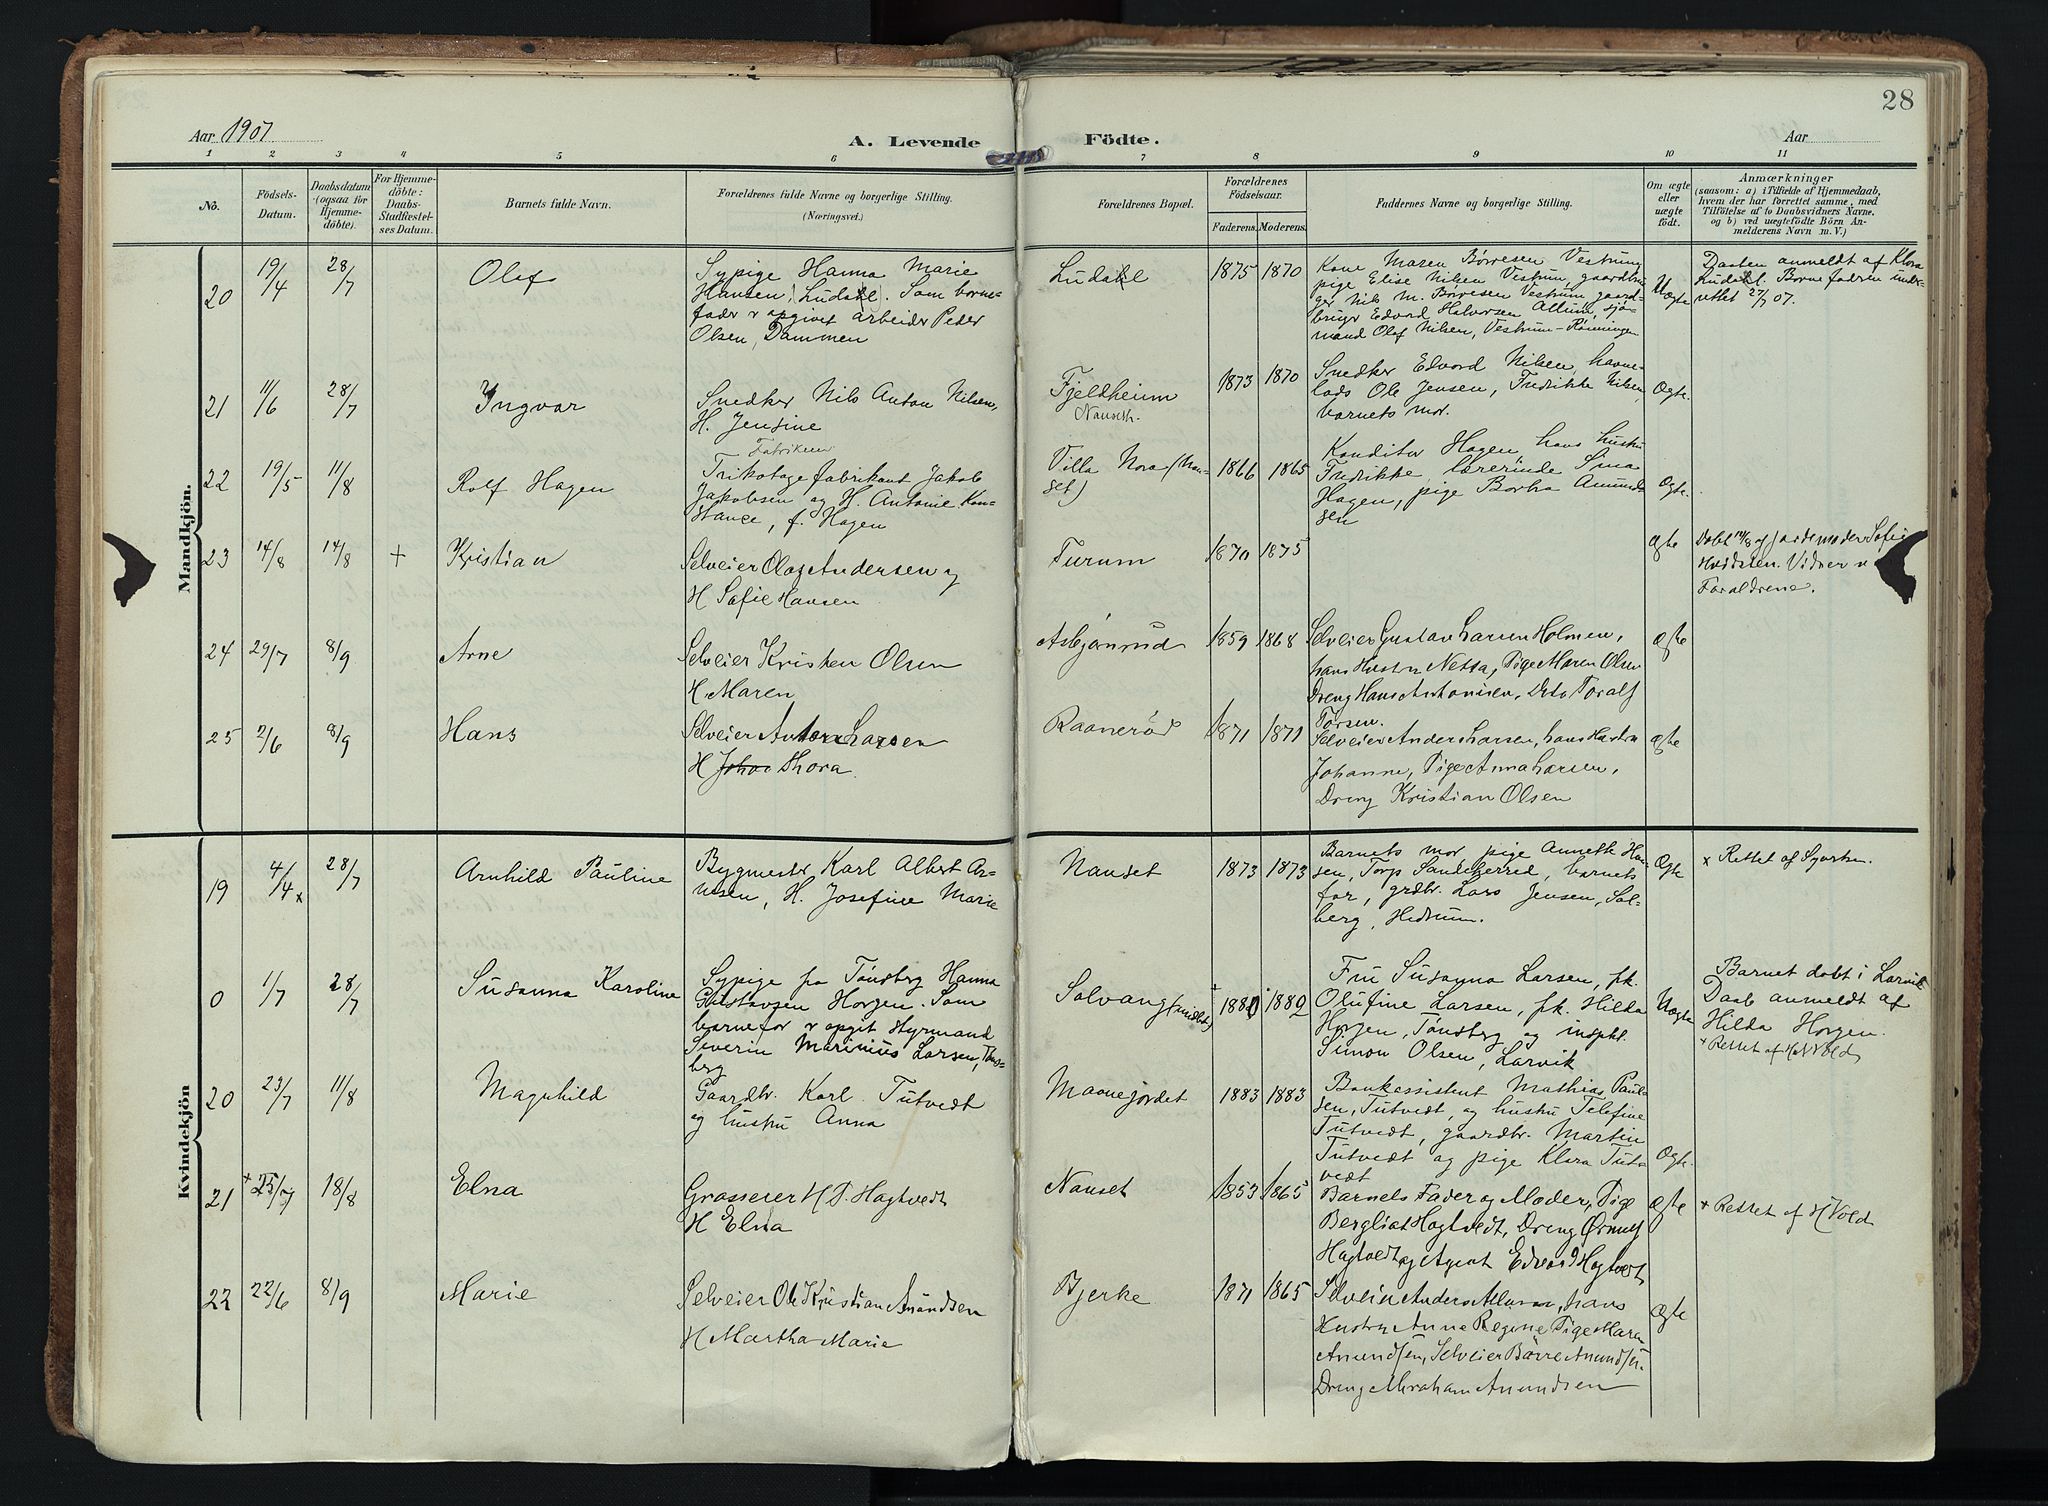 28
Aar 1907
A. Levende Födte.
Aar
1 2 3 4 5 6 7 8 9 10 11
No.
Födsels-Datum.
Daabsdatum (ogsaa for Hjemmedöbte).
For Hjemmedöbte: Daabs-Stadfæstelses Datum.
Barnets fulde Navn.
Forældrenes fulde Navne og borgerlige Stilling.
(Næringsvei.)
Forældrenes Bopæl.
Forældrenes Födselsaar.
Faderens. Moderens.
Faddernes Navne og borgerlige Stilling.
Om ægte eller uægte födt.
Anmærkninger
(saasom: a) i Tilfælde af Hjemmedaab, hvem der har forrettet samme, med Tilföielse af to Daabsvidners Navne, og b) ved uægtefödte Börn Anmelderens Navn m. V.)
Mandkjön.
20 19/4 28/7 Olaf
Sypige Hanna Marie
Hansen, Ludahl. Som barne-
fader er opgivet arbeider Peder
Olsen, Dammen
Ludahl 1875 1870
Kone Maren Børresen Vestrum,
pige Elise Nilsen Vestrum, gaardbru-
ger Nils M. Børresen Vestrum, gaard-
brugr Edvard Halvorsen Allum, sjø-
mand Olaf Nilsen, Vestrum-Rønningen
Uægte
Daaben anmeldt af Klara
Ludahl. Barnefaderen under-
rettet 27/7 07.
21 11/6 28/7 Yngvar
Snedker Nils Anton Nilsen,
H. Jensine
Fjeldheim
Nanseth.
1873 1870
Snedker Edvard Nilsen, havne-
lods Ole Jensen, Fredrikke Nilsen,
barnets mor.
Ægte.
22 19/5 11/8 Rolf Hagen
Fabrikeier
Trikotagefabrikant Jakob
Jakobsen og H. Antonie Kon-
stance, f. Hagen
Villa Nora (Nan-
set)
1866 1865
Konditor Hagen, hans hustru
Fredrikke, lærerinde Sina
Hagen, pige Borha Amund-
sen
Ægte.
23 14/8 14/8 + Kristian
Selveier Olaf Andersen og
H Sofie Hansen
Furum 1870 1875
ægte
Døbt 14/8 af jordemoder Sofie
Forældrene.
24 29/7 8/9 Arne
Selveier Kristen Olsen
H. Maren
Asbjørnrud 1859 1868
Selveier Gustav Larsen Holmen,
hans Hustru Netta, Pige Maren Olsen
Dreng Hans Antonisen, Dito Toralf
Torsen.
ægte
25 2/6 8/9 Hans
Selveier Anton Larsen
H Johan Thora
Raanerød 1871 1871
Selveier Anders Larsen, hans Hustru
Johanne, Pige Anna Larsen,
Dreng Kristian Olsen
ægte
Kvindekjön
19 4/4 x 28/7 Arnhild Pauline
Bygmester Karl Albert Ar-
nesen, H. Josefine Marie
Nanset 1873 1873
Barnets mor, pige Annette Han-
sen, Torp Sandeherred, barnets
far, grdbr. Lars Jensen, Sol-
berg, Hedrum.
Ægte
x Rettet af Sgnpr.
0 1/7 28/7 Susanna Karoline
Sypige fra Tønsberg Hanna
Gustavsen Horgen. Som
barnefar er opgit styrmand
Severin Marinius Larsen, Tøns-
berg
Solvang
1880 1882
Fru Susanna Larsen, frk.
Olufine Larsen, frk. Hilda
Horgen, Tønsberg og inspkt.
Simon Olsen, Larvik
Uægte
Barnet døbt i Larvik
Daab anmeldt af
Hilda Horgen.
+ Rettet af H Vold
20 23/7 11/8 Magnhild
Gaardbr. Karl Tutvedt
og hustru Anna
Maanejordet 1883 1883
Bankassistent Mathias Paul-
sen, Tutvedt, og hustru Telefine
Tutvedt, gaardbr. Martin
Tutvedt og pige Klara Tut-
vedt
Ægte.
21 + 25/7 18/8 Elna
Grosserer H. P. Hagtvedt
H Elna
Nanset 1853 1865
Barnets Fader og Moder, Pige
Bergliot Hagtvedt, Dreng Ørnulf
Hagtvedt og Agent Edvard Hagtvedt
ægte
+ Rettet af H Vold
22 22/6 8/9 Marie
Selveier Ole Kristian Amundsen
H Martha Marie
Bjerke 1871 1865
Selveier Anders Allum, hans
Hustru Anne Regine Pige Maren
Amundsen, Selveier Børre Amundsen.
Dreng Abraham Amundsen
ægte